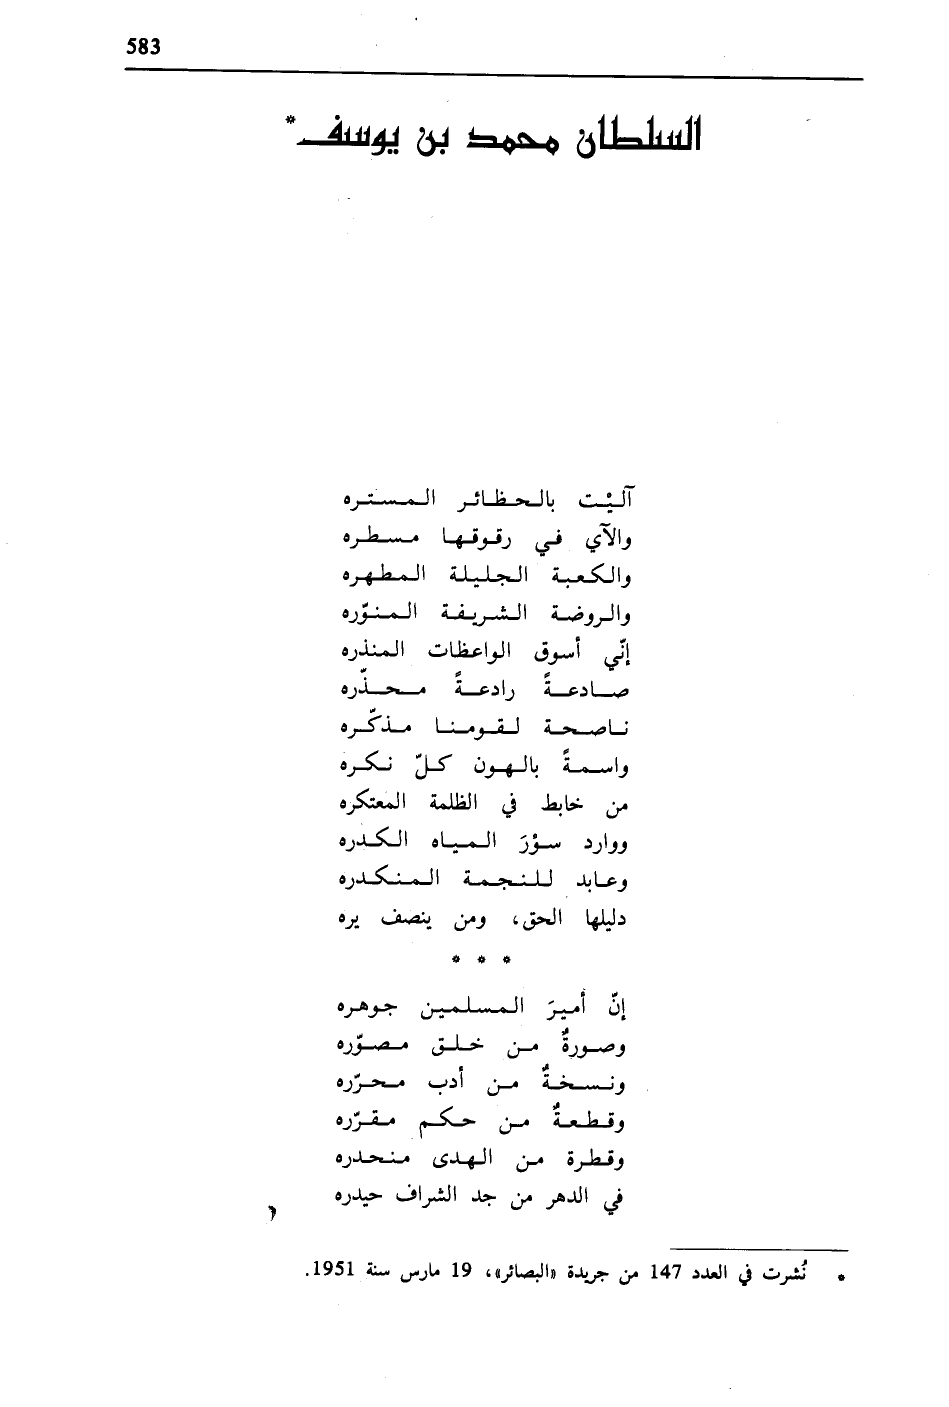 583
السلطان محمد بن يوسف*
آليْت بالحظائر المستره
والآي في رقوقها مسطره
والكعبة الجليلة المطهره
والروضة الشريفة المنوّره
إنّي أسوق الواعظات المنذره
صادعةً رادعةً محذّره
ناصحة لقومنا مذكّره
واسمةً بالهون كلّ نكره
من خابط في الظلمة المعتكره
ووارد سؤرَ المياه الكدره
وعابد للنجمة المنكدره
دليلها الحق، ومن ينصف يره
* * *
إنّ أميرَ المسلمين جوهره
وصورةٌ من خلق مصوّره
ونسخةٌ من أدب محرّره
وقطعةٌ من حكم مقرّره
وقطرة من الهدى منحدره
في الدهر من جد الشراف حيدره
* نُشرت في العدد 147 من جريدة «البصائر»، 19 مارس سنة 1951.